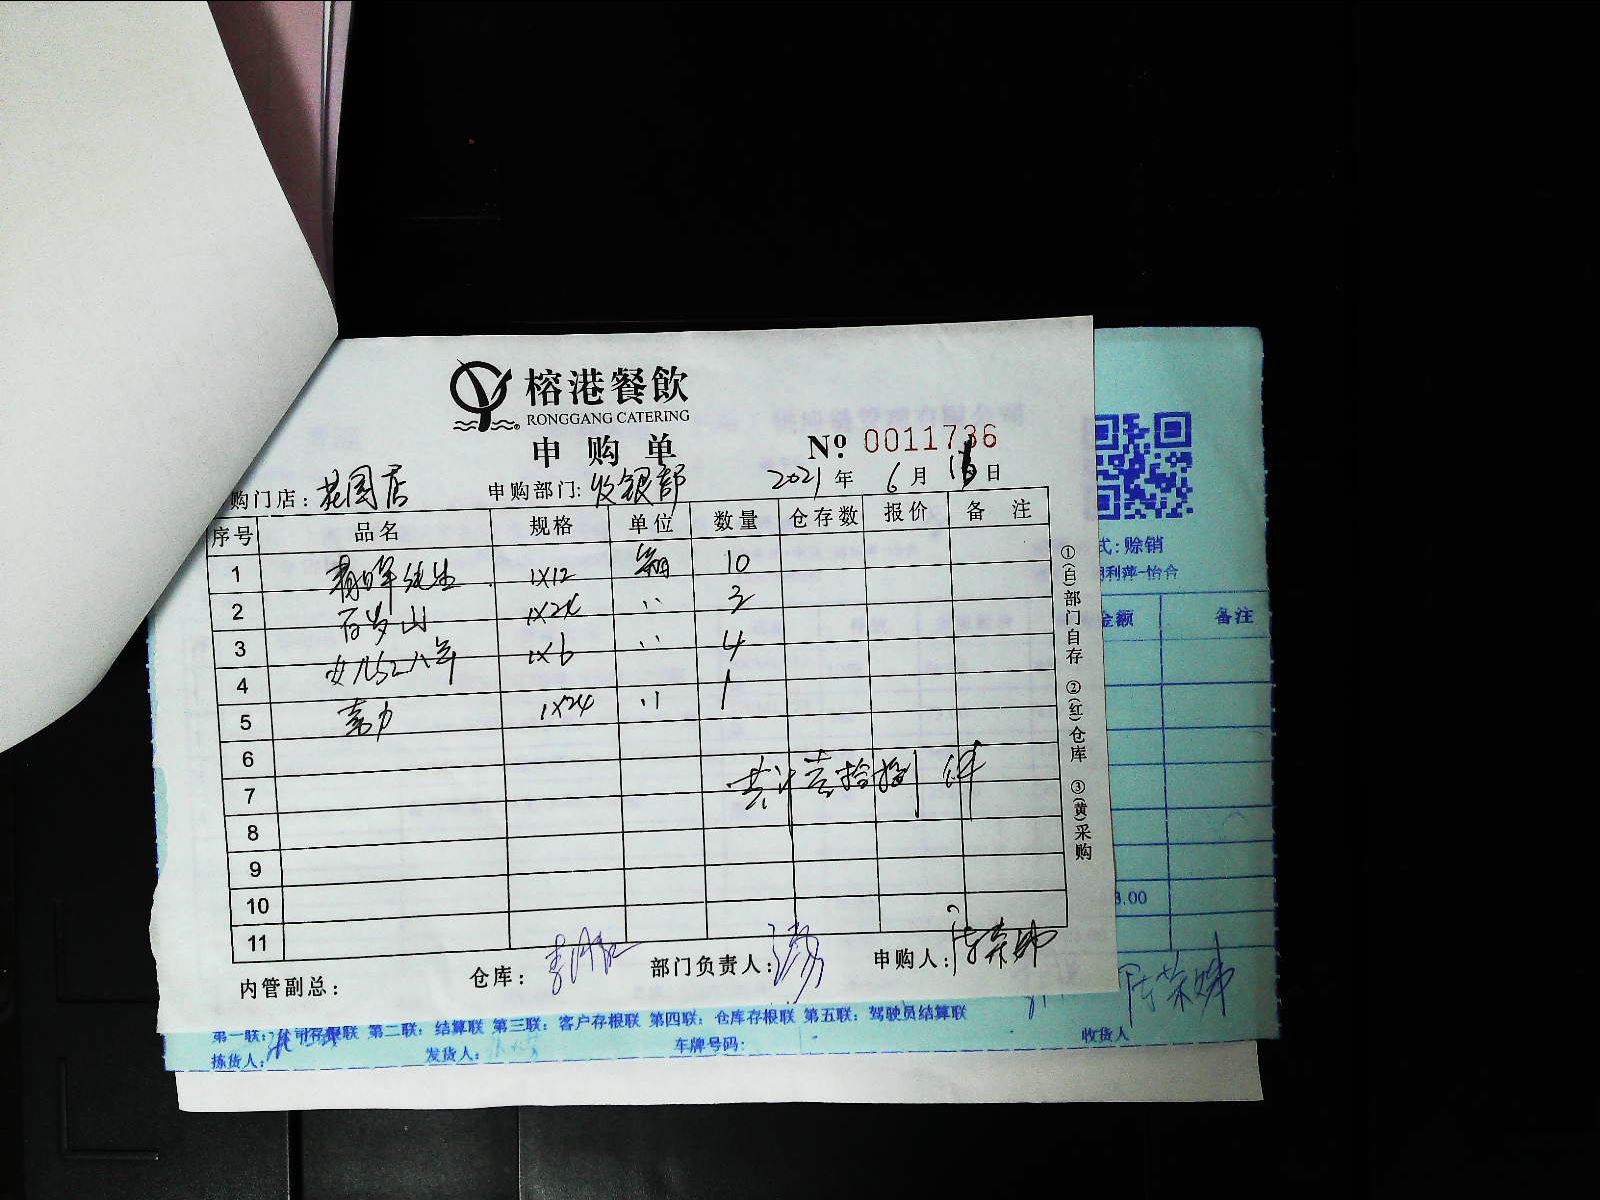 榕港餐飲
RONGGANG CATERING
申购单
Nº: 0011736
购门店: 花园店 申购部门: 收银部 2021年 6月 16日
序号 品名 规格 单位 数量 仓存数 报价 备注
1 1X12 箱 10
2 百岁山 1X24 〃 3
3 女儿红八年 1X6 〃 4
4 1
5 1X24 〃
6
7 共计壹拾捌件
8
9
10
11
内管副总: 仓库: 部门负责人: 申购人:
①(白)部门自存 ②(红)仓库 ③(黄)采购
式: 赊销
利萍-怡合
金额 备注
3.00
第一联: 公司存根联 第二联: 结算联 第三联: 客户存根联 第四联: 仓库存根联 第五联: 驾驶员结算联
拣货人: 发货人: 车牌号码: 收货人